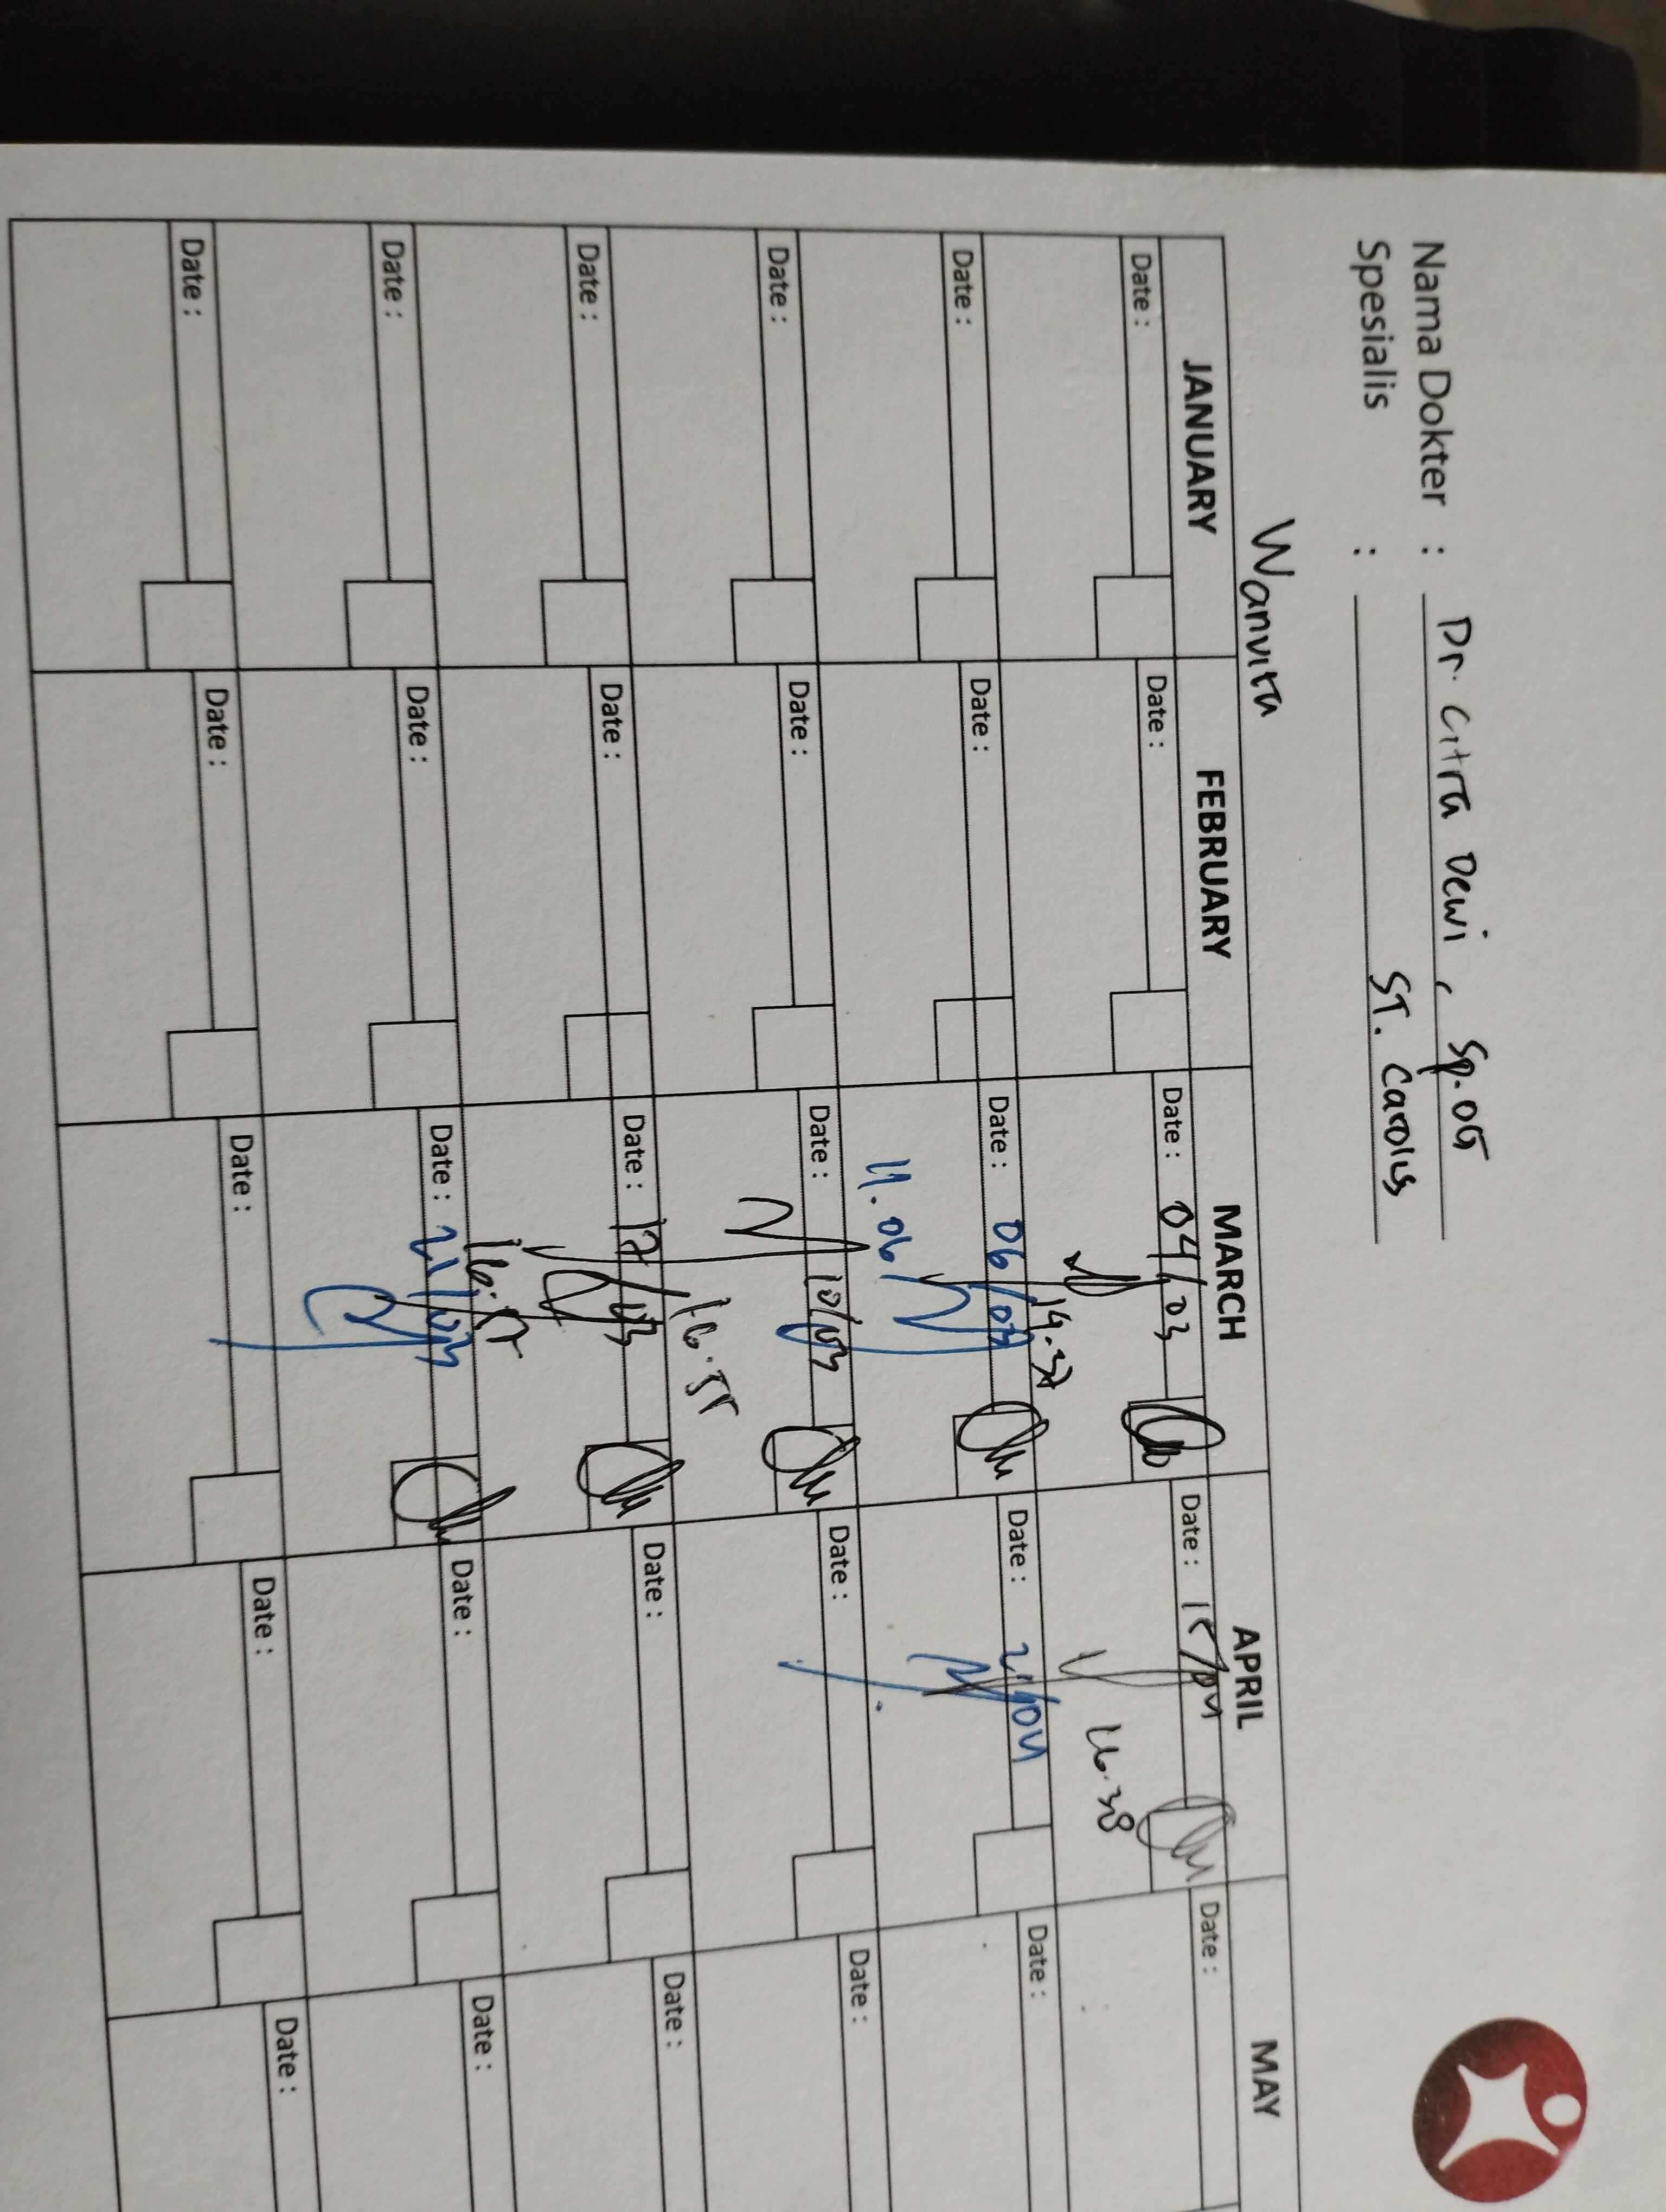 Nama Dokter : Dr. Citra Dewi, Sp.OG
Spesialis : ST. Carolus
Wanvita
JANUARY FEBRUARY MARCH APRIL MAY
Date : Date : Date : 04/03 Date : 15/04 Date :
14.37 16.38
Date : Date : Date : 06/03 Date : 21/04 Date :
11.06
Date : Date : Date : 10/03 Date : Date :
16.55
Date : Date : Date : 17/03 Date : Date :
16.57
Date : Date : Date : 21/03 Date : Date :
Date : Date : Date : Date : Date :